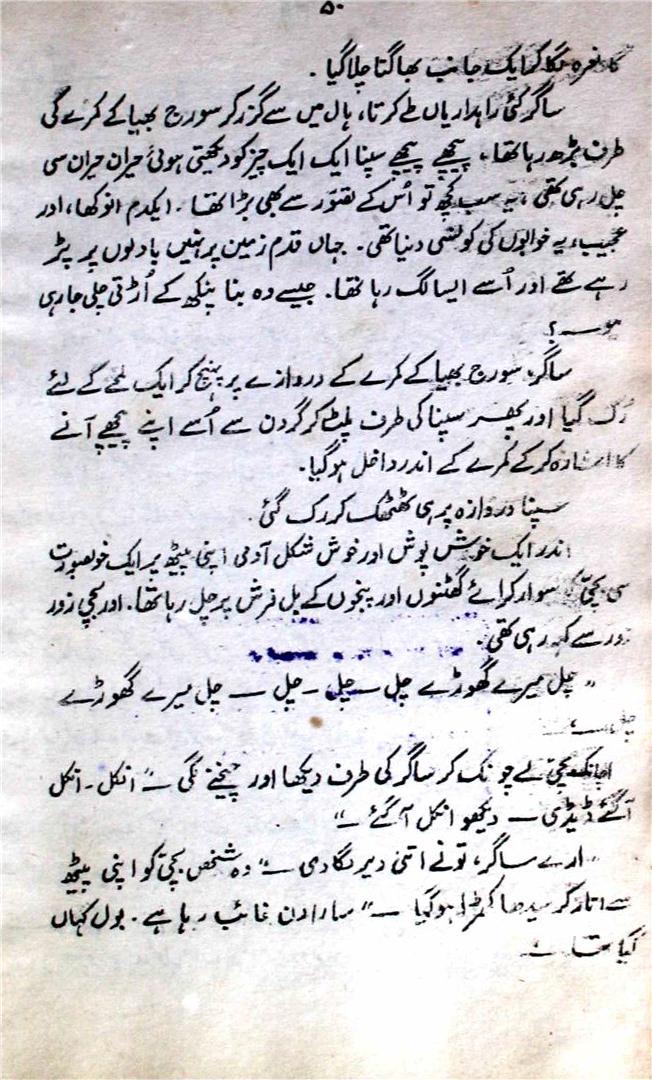 ۵۰
کا نعرہ لگا کر ایک جانب بھاگتا چلا گیا۔
ساگر کئی راہداریاں طے کرتا، ہال میں سے گزر کر سورج بھیا کے کمرے کی
طرف بڑھ رہا تھا، پیچھے پیچھے سپنا ایک ایک چیز کو دیکھتی ہوئی حیران حیران سی
چل رہی تھی، یہ سب کچھ تو اُس کے تصوّر سے بھی بڑا تھا۔ ایکدم انوکھا، اور
عجیب، یہ خوابوں کی کونسی دنیا تھی۔ جہاں قدم زمین پر نہیں بادلوں پر پڑ
رہے تھے اور اُسے ایسا لگ رہا تھا۔ جیسے وہ بنا پنکھ کے اُڑتی چلی جا رہی
ہو۔؟
ساگر، سورج بھیا کے کمرے کے دروازے پر پہنچ کر ایک لمحے کے لئے
رُک گیا اور پھر سپنا کی طرف پلٹ کر گردن سے اُسے اپنے پیچھے آنے
کا اشارہ کر کے کمرے کے اندر داخل ہو گیا۔
سپنا دروازہ پر ہی ٹھٹھک کر رک گئی۔
اندر ایک خوش پوش اور خوش شکل آدمی اپنی پیٹھ پر ایک خوبصورت
سی بچّی کو سوار کرائے گھٹنوں اور پنجوں کے بل فرش پر چل رہا تھا۔ اور بچی زور
زور سے کہہ رہی تھی۔
"چل میرے گھوڑے چل — چل — چل — چل میرے گھوڑے
چل —"
اچانک بچّی نے چونک کر ساگر کی طرف دیکھا اور چیخنے لگی —" انکل۔ انکل
آگئے ڈیڈی — دیکھو انکل آ گئے —"
"ارے ساگر، تو نے اتنی دیر لگا دی —" وہ شخص بچّی کو اپنی پیٹھ
سے اتار کر سیدھا کھڑا ہو گیا —" سارا دن غائب رہا ہے۔ بول کہاں
گیا تھا —"